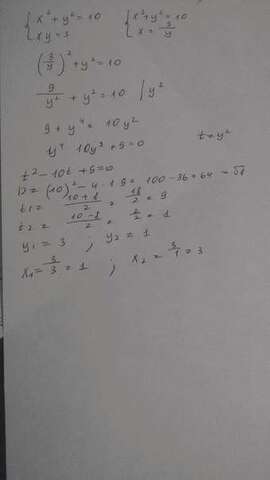 { x² + y² = 10 { x² + y² = 10
{ xy = 3 { x = 3/y
(3/y)² + y² = 10
9/y² + y² = 10 | y²
9 + y⁴ = 10y²
y⁴ 10y² + 9 = 0 t = y²
t² - 10t + 9 = 0
D = (10)² - 4 · 1 · 9 = 100 - 36 = 64 = √8
t₁ = (10 + 8)/2 = 18/2 = 9
t₂ = (10 - 8)/2 = 2/2 = 1
y₁ = 3 ; y₂ = 1
x₁ = 3/3 = 1 ; x₂ = 3/1 = 3